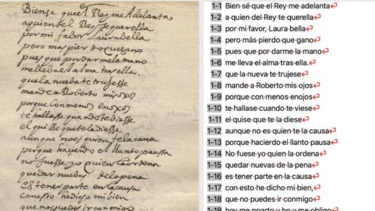 Biense que el Rey me adelanta
aquien del Rey te querella
por mi fabor laura bella
pero mas pier do que gano
pues que por dar me la mano
me lleba el alma tras ella
que la nueba te truxesse
manda a Roberto mis oxos
porque con menos enoxos
te hallasse quando te viesse
el quise que te la diesse
aunque no es quien te la causa
porque haciendo el llanto pausa
no fuesse yo quien la orden
quedar nuebas de la pena
es tener parte en la causa
con esto he dicho mi bien
que no puedes ir conmigo
1-1 Bien sé que el Rey me adelanta
1-2 a quien del Rey te querella
1-3 por mi favor, Laura bella
1-4 pero más pierdo que gano
1-5 pues que por darme la mano
1-6 me lleva el alma tras ella.
1-7 que la nueva te trujese
1-8 mande a Roberto mis ojos
1-9 porque con menos enojos
1-10 te hallase cuando te viese
1-11 el quise que te la diese
1-12 aunque no es quien te la causa
1-13 porque haciendo el llanto pausa
1-14 No fuese yo quien la ordena
1-15 quedar nuevas de la pena
1-16 es tener parte en la causa
1-17 con esto he dicho mi bien,
1-18 que no puedes ir conmigo